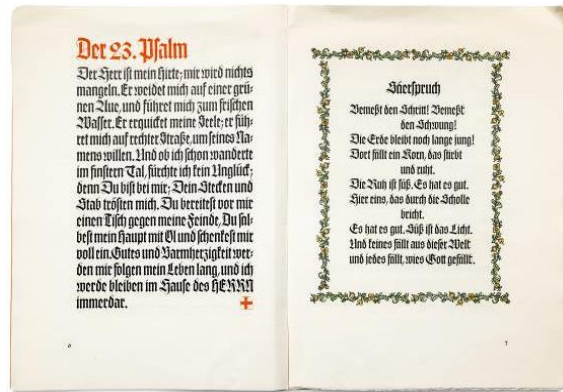 Der 23. Psalm
Der Herr ist mein Hirte; mir wird nichts
mangeln. Er weidet mich auf einer grü-
nen Aue, und führet mich zum frischen
Wasser. Er erquicket meine Seele; er füh-
ret mich auf rechter Straße, um seines Na-
mens willen. Und ob ich schon wanderte
im finstern Tal, fürchte ich kein Unglück;
denn Du bist bei mir; Dein Stecken und
Stab trösten mich. Du bereitest vor mir
einen Tisch gegen meine Feinde, Du sal-
best mein Haupt mit Öl und schenkest mir
voll ein. Gutes und Barmherzigkeit wer-
den mir folgen mein Leben lang, und ich
werde bleiben im Hause des HERRN
immerdar.
Säerspruch
Bemeßt den Schritt! Bemeßt
den Schwung!
Die Erde bleibt noch lange jung!
Dort fällt ein Korn, das stirbt
und ruht.
Die Ruh ist süß. Es hat es gut.
Hier eins, das durch die Scholle
bricht.
Es hat es gut. Süß ist das Licht.
Und keines fällt aus dieser Welt
und jedes fällt, wies Gott gefällt.